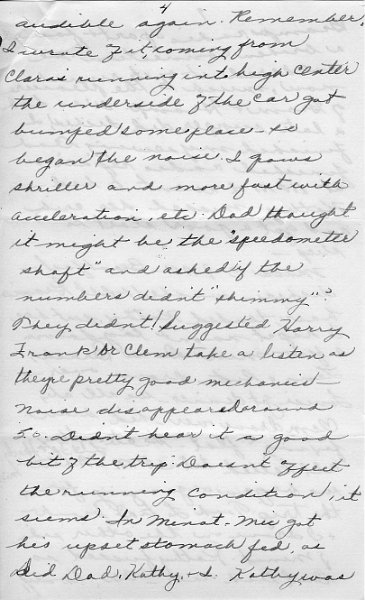 4
audible again. Remember,
I wrote of it, coming from
Clara's running into high center
the underside of the car got
bumped someplace - so
began the noise. I grows
shriller and more fast with
acceleration, etc. Dad thought
it might be the "speedometer
shaft" and asked if the
numbers didn't "shimmy"?
They didn't! Suggested Harry
Frank or Clem take a listen as
they're pretty good mechanics -
Noise disappears around
50. Didn't hear it a good
bit of the trip. Doesn't affect
the running condition, it
seems. In Minot - Mic got
his upset stomach fed, as
did Dad, Kathy, + I. Kathy was